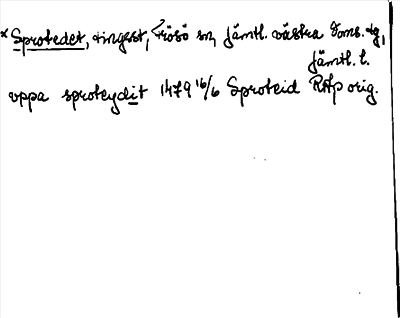 × Sprotedet, tingest, Frösö sn, Jämtl. västra Doms. tg,
Jämtl. l.
vppa sproteydit 1479 16/6 Sproteid RAp orig.